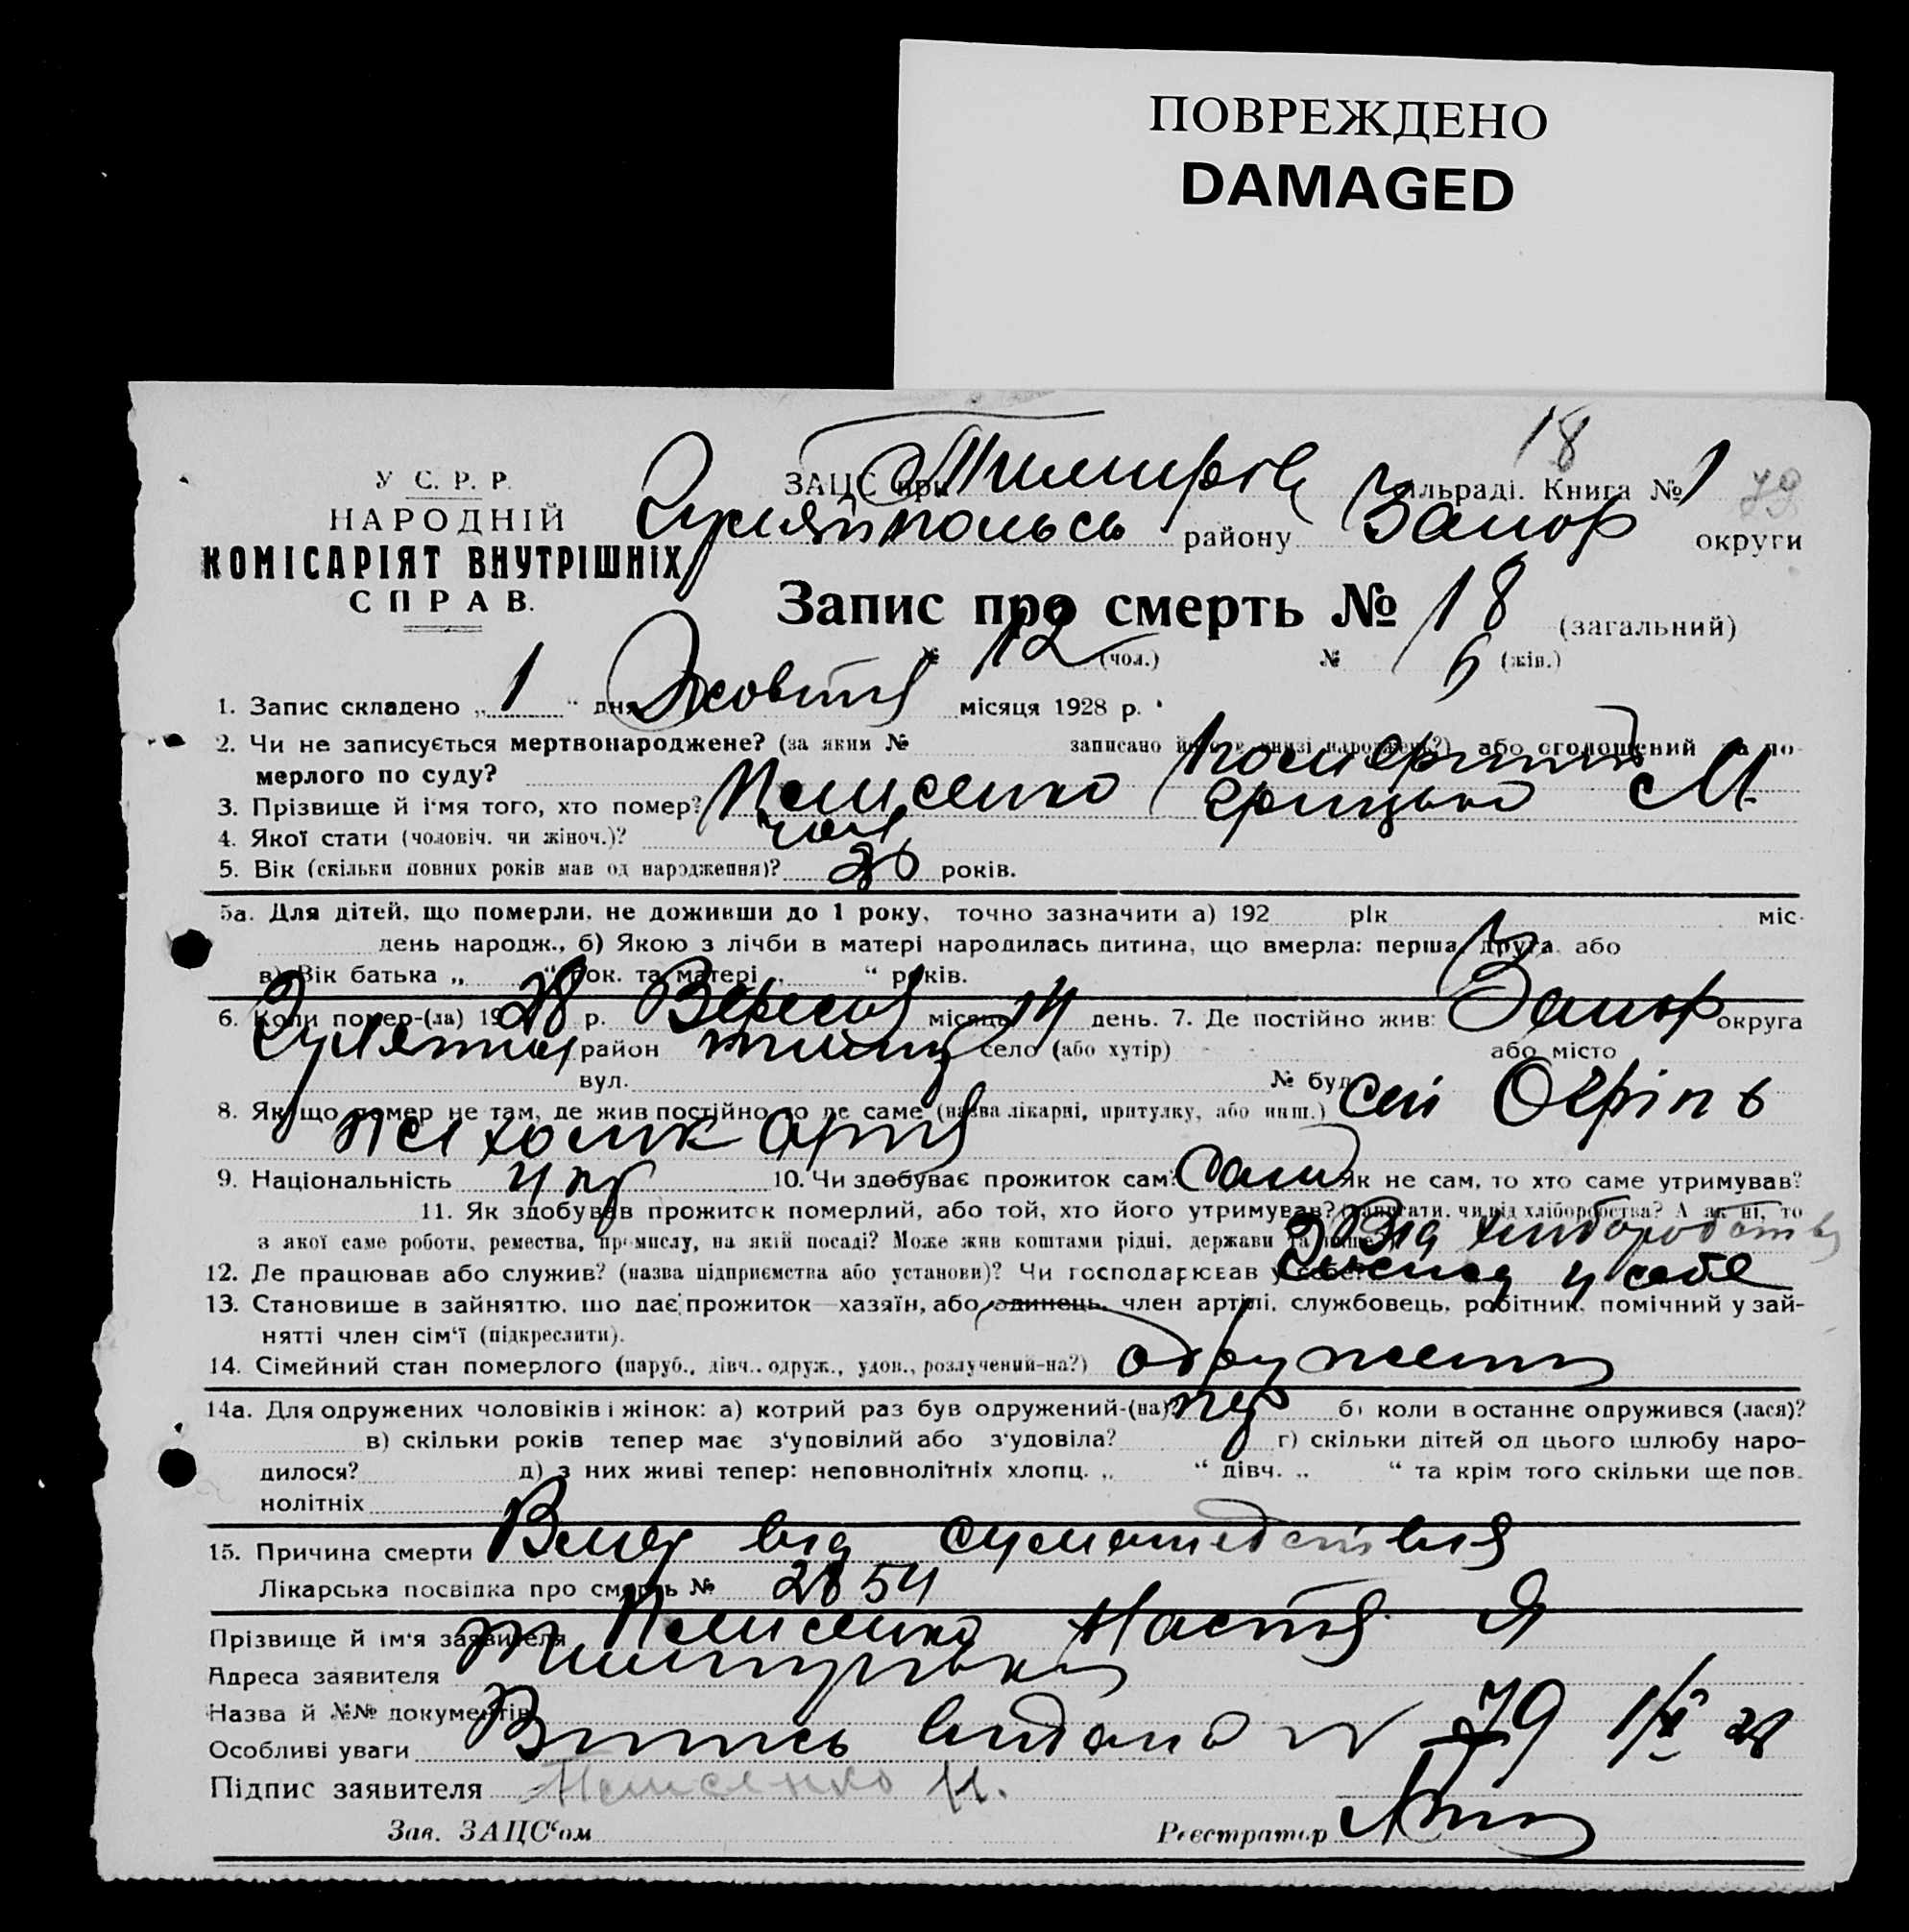 ПОВРЕЖДЕНО
DAMAGED
18
У С. Р. Р.
НАРОДНІЙ
КОМІСАРІЯТ ВНУТРІШНІХ
СПРАВ.
ЗАЦС при сільраді. Книга № 1 79
району Запор округи
Запис про смерть № 18 (загальний)
№ 12 (чол.) № 6 (жін.)
1. Запис складено „ 1 “ дня Жовтня місяця 1928 р.
2. Чи не записується мертвонароджене? (за яким № записано його в книзі народжень?) або оголошений за по-
мерлого по суду?
3. Прізвище й і'мя того, хто помер? Грицько М
4. Якої стати (чоловіч. чи жіноч.)? чол
5. Вік (скільки повних років мав од народження)? років.
5а. Для дітей, що померли, не доживши до 1 року, точно зазначити а) 192 рік міс.
день народж., б) Якою з лічби в матері народилась дитина, що вмерла: перша, друга або
в) Вік батька „ “ рок. та матері „ “ років.
6. Коли помер-(ла) 1928 р. Вересня місяця 14 день. 7. Де постійно жив: Запор округа
район село (або хутір) або місто
вул. № буд.
8. Якщо помер не там, де жив постійно то де саме (назва лікарні, притулку, або инш.)
9. Національність укр 10. Чи здобуває прожиток сам? Сам Як не сам, то хто саме утримував?
11. Як здобував прожиток померлий, або той, хто його утримував? (записати, чи від хліборобства? А як ні, то
з якої саме роботи, ремества, промислу, на якій посаді? Може жив коштами рідні, держави та инше) Від хліборобства
12. Де працював або служив? (назва підприємства або установи)? Чи господарював у себе? у себе
13. Становище в зайняттю, що дає прожиток—хазяїн, або одинець, член артілі, службовець, робітник, помічний у зай-
нятті член сім'ї (підкреслити).
14. Сімейний стан померлого (паруб., дівч., одруж., удов., розлучений-на?)
14а. Для одружених чоловіків і жінок: а) котрий раз був одружений-(на)? пер б) коли востаннє одружився (лася)?
в) скільки років тепер має з'удовілий або з'удовіла? г) скільки дітей од цього шлюбу наро-
дилося? д) з них живі тепер: неповнолітніх хлопц. „ “ дівч. „ “ та крім того скільки ще пов.
нолітніх
15. Причина смерти Вмер від сумашедствия
Лікарська посвідка про смерть № 2854
Прізвище й ім'я заявителя Настя Я
Адреса заявителя
Назва й №№ документів
Особливі уваги Витись видано № 79 1/X 28
Підпис заявителя Н.
Зав. ЗАЦС'ом Реєстратор